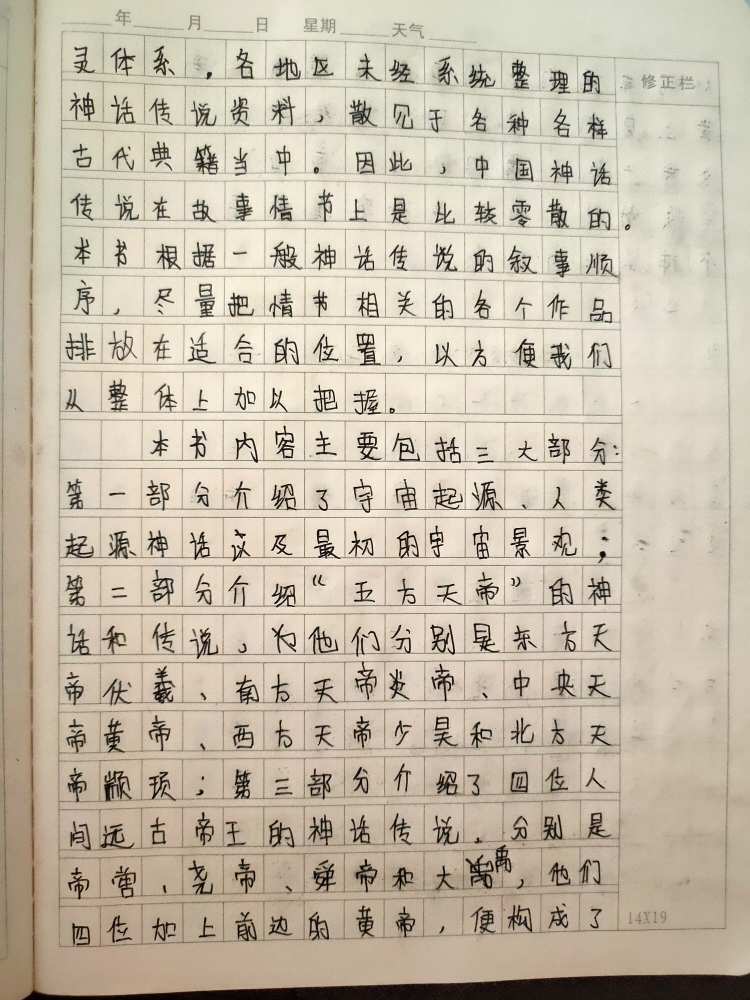 年 月 日 星期 天气
修正栏
灵体系，各地区未经系统整理的
神话传说资料，散见于各种各样
古代典籍当中。因此，中国神话
传说在故事情节上是比较零散的。
本书根据一般神话传说的叙事顺
序，尽量把情节相关的各个作品
排放在适合的位置，以方便我们
从整体上加以把握。
本书内容主要包括三大部分：
第一部分介绍了宇宙起源、人类
起源神话议及最初的宇宙景观；
第二部分介绍“五方天帝”的神
话和传说，为他们分别是东方天
帝伏羲、南方天帝炎帝、中央天
帝黄帝、西方天帝少昊和北方天
帝颛顼；第三部分介绍了四位人
间远古帝王的神话传说，分别是
帝喾、尧帝、舜帝和大禹，他们
四位加上前边的黄帝，便构成了
14X19